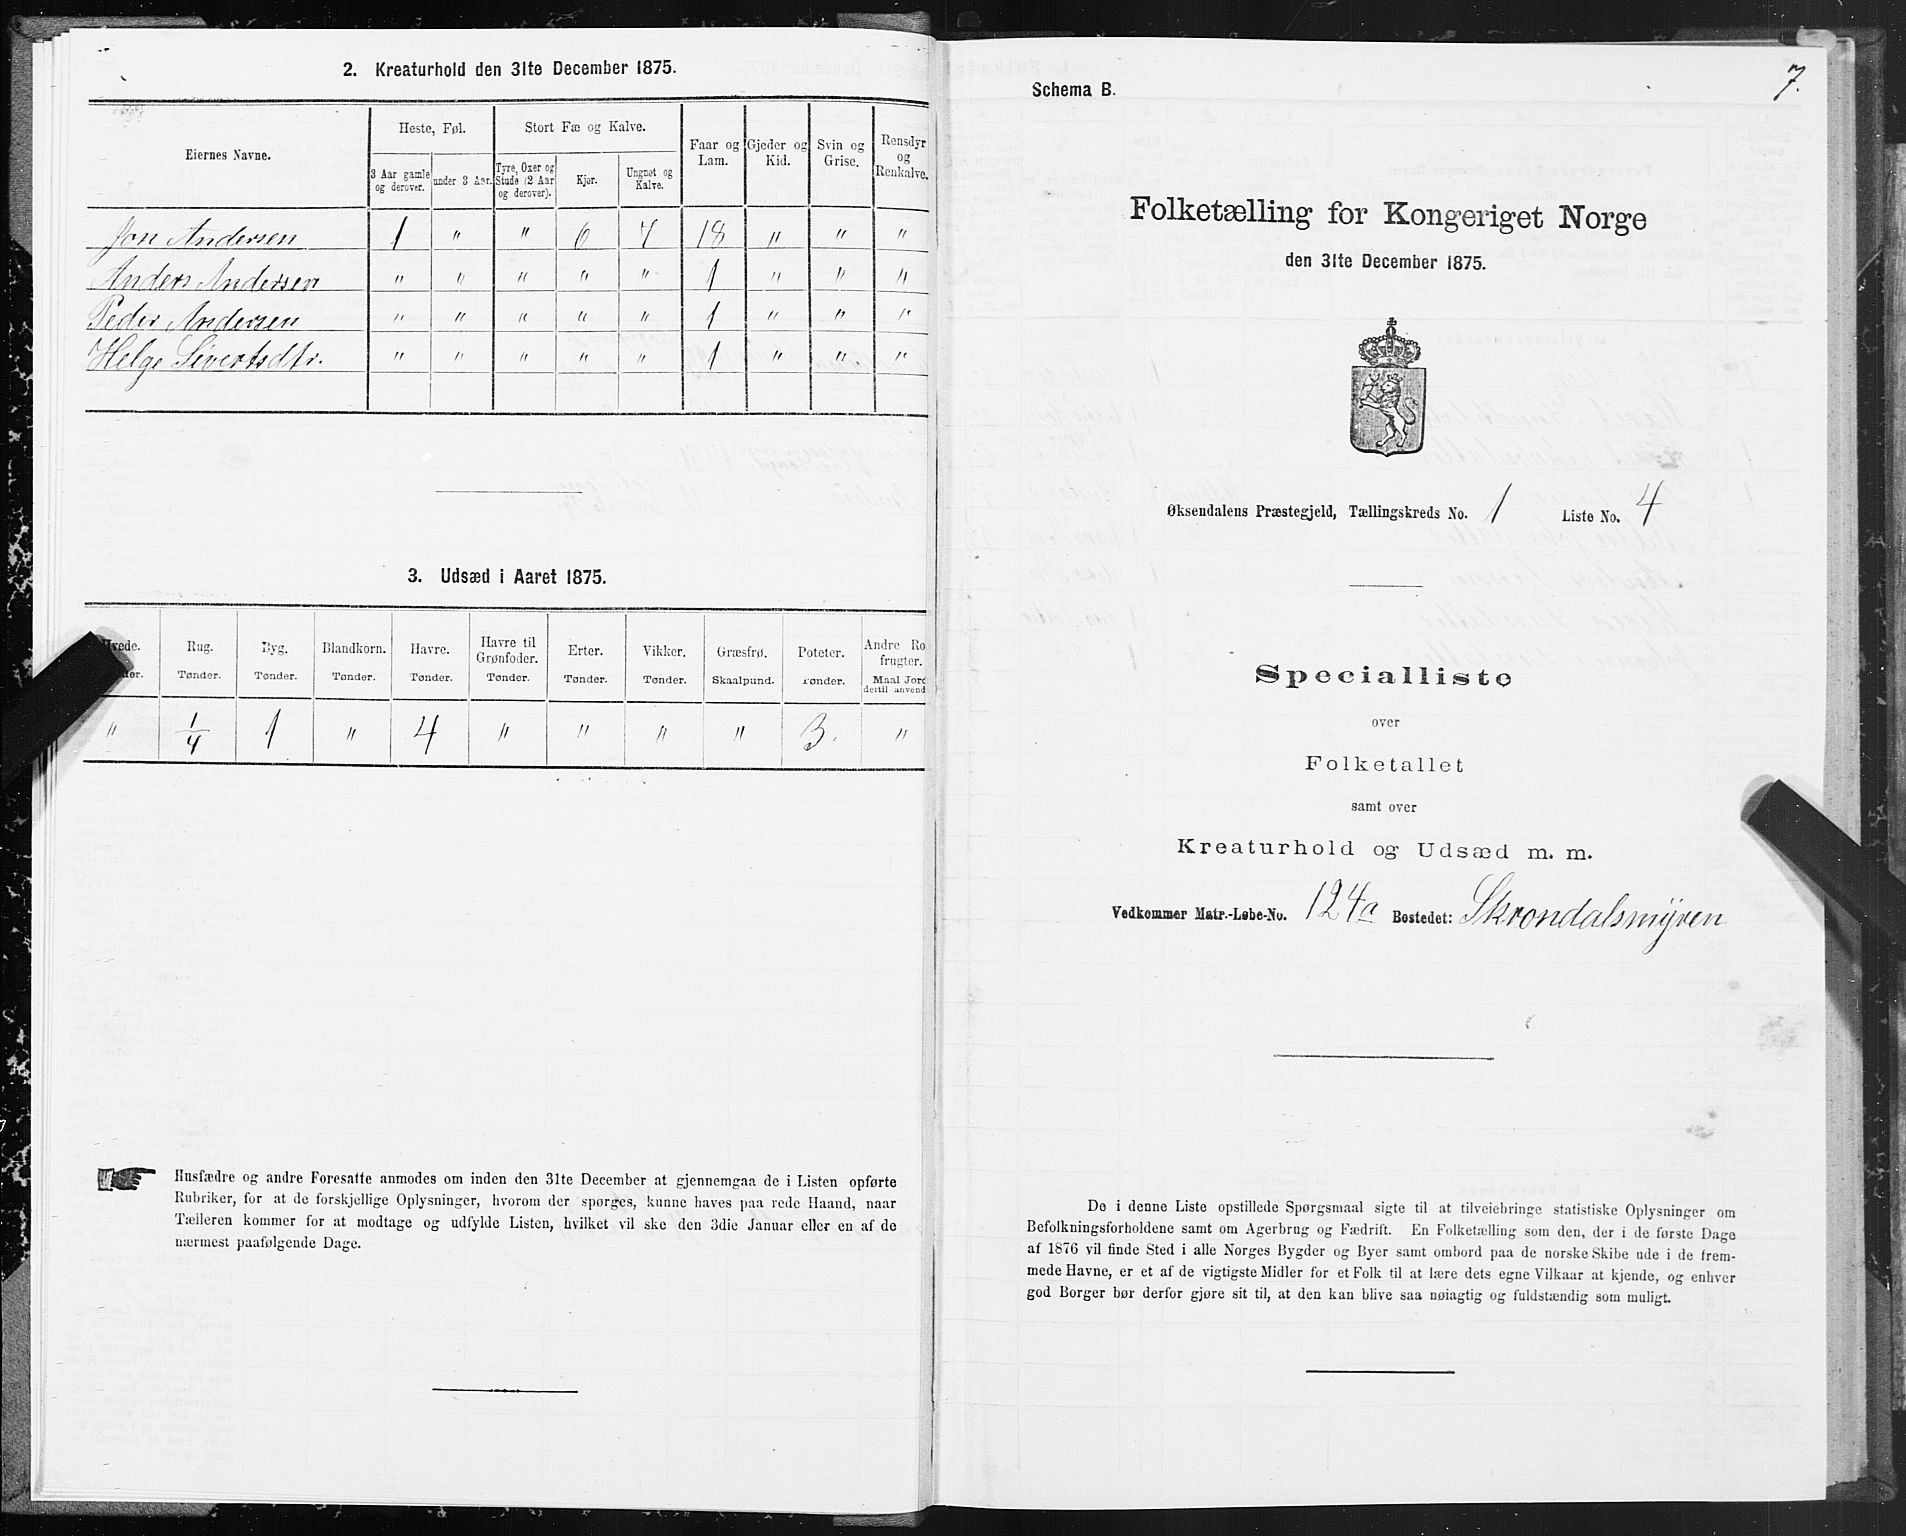 2. Kreaturhold den 31te December 1875.
Eiernes Navne.
Heste, Føl.
Stort Fæ og Kalve.
Faar og Lam.
Gjeder og Kid.
Svin og Grise.
Rensdyr og Renkalve.
3 Aar gamle og derover.
under 3 Aar.
Tyre, Oxer og Stude (2 Aar og derover).
Kjør.
Ungnøt og Kalve.
Jon Andersen 1 " " 6 7 18 " " "
Anders Andersen " " " " " 1 " " "
Peder Andersen " " " " " 1 " " "
Helge Sivertsdtr. " " " " " 1 " " "
3. Udsæd i Aaret 1875.
Hvede. Rug. Byg. Blandkorn. Havre. Havre til Grønfoder. Erter. Vikker. Græsfrø. Poteter. Andre Ro frugter.
Tønder. Tønder. Tønder. Tønder. Tønder. Tønder. Tønder. Skaalpund. Tønder. Maal Jord dertil anvend
" 1/4 1 " 4 " " " " 3. "
Husfædre og andre Foresatte anmodes om inden den 31te December at gjennemgaa de i Listen opførte
Rubriker, for at de forskjellige Oplysninger, hvorom der spørges, kunne haves paa rede Haand, naar
Tælleren kommer for at modtage og udfylde Listen, hvilket vil ske den 3die Januar eller en af de
nærmest paafølgende Dage.
7.
Schema B.
Folketælling for Kongeriget Norge
den 31te December 1875.
Øksendalens Præstegjeld, Tællingskreds No. 1 Liste No. 4
Specialliste
over
Folketallet
samt over
Kreaturhold og Udsæd m. m.
Vedkommer Matr.-Løbe-No. 124a Bostedet: Skrondalsmyren
De i denne Liste opstillede Spørgsmaal sigte til at tilveiebringe statistiske Oplysninger om
Befolkningsforholdene samt om Agerbrug og Fædrift. En Folketælling som den, der i de første Dage
af 1876 vil finde Sted i alle Norges Bygder og Byer samt ombord paa de norske Skibe ude i de frem-
mede Havne, er et af de vigtigste Midler for et Folk til at lære dets egne Vilkaar at kjende, og enhver
god Borger bør derfor gjøre sit til, at den kan blive saa nøiagtig og fuldstændig som muligt.